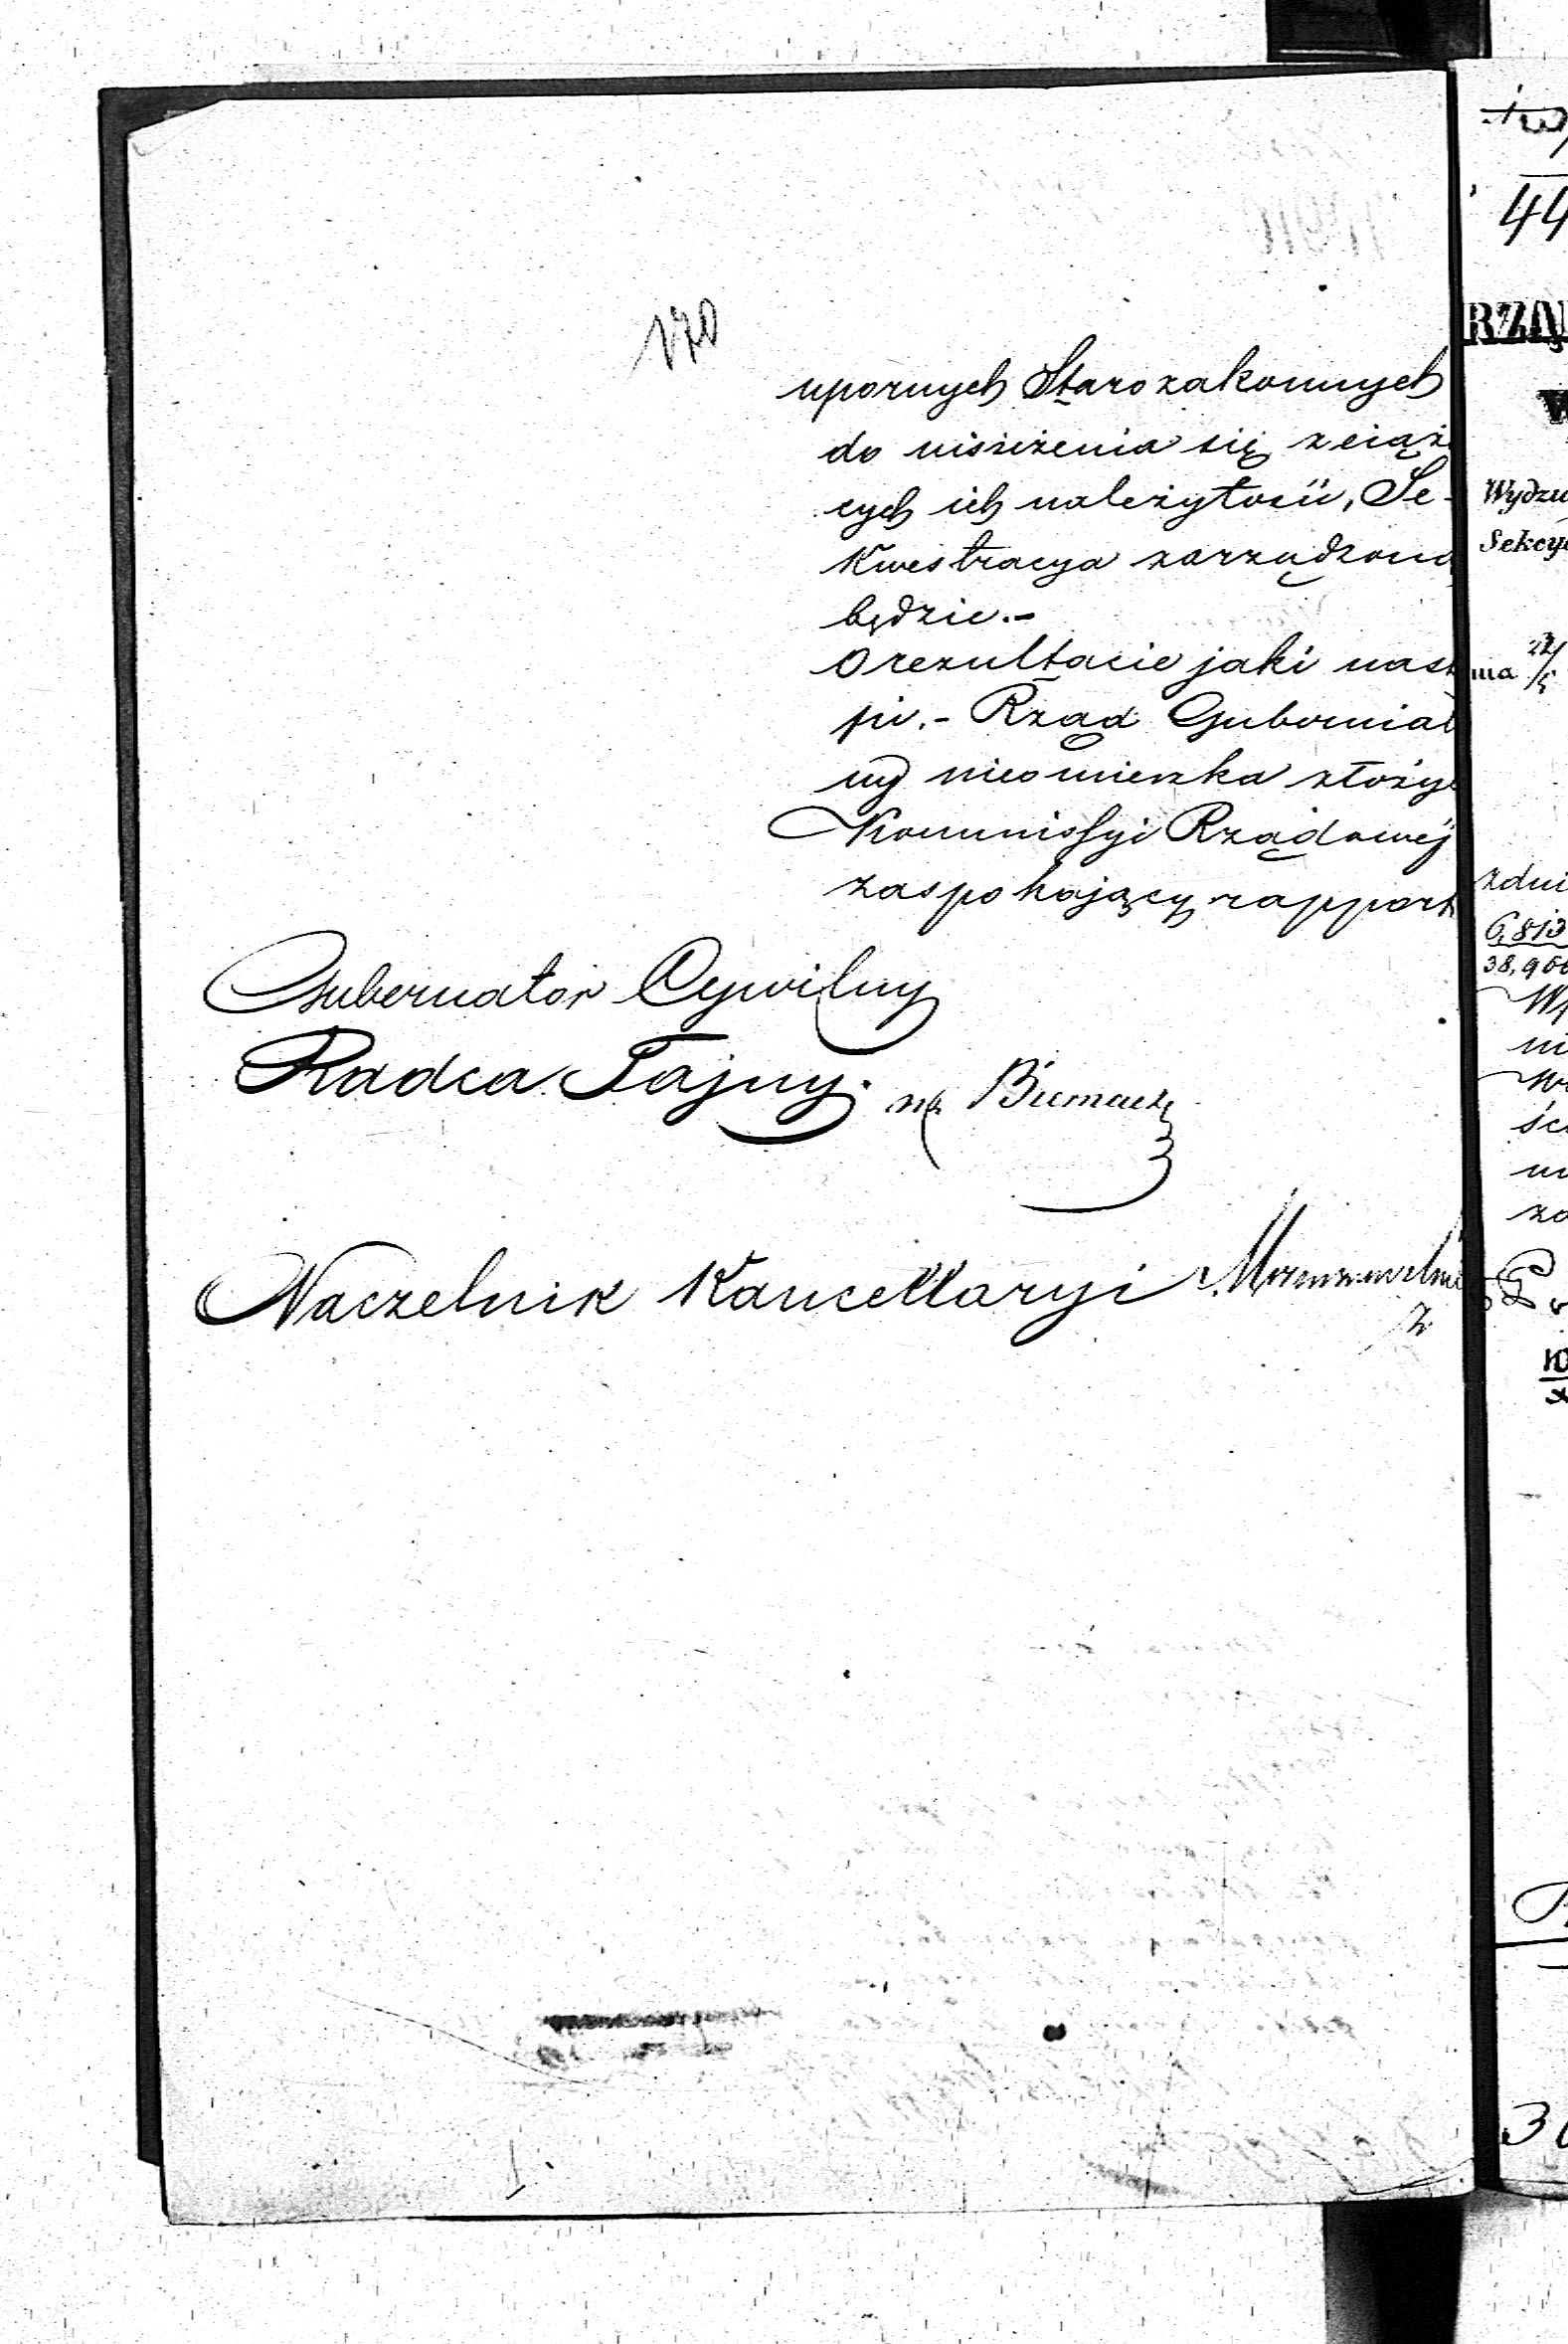 170
upornych Starozakonnych
do uiszczenia się z ciążą
cych ich należytości, Se-
kwestracya zarządzoną
będzie.-
O rezultacie jaki nastą
pi.- Rząd Gubernial
ny nieomieszka złożyć
Kommissyi Rządowej
zaspokajający rapport
Gubernator Cywilny
Radca Tajny.
Naczelnik Kancellaryi
44
RZĄ
Wydzi
Sekcy
nia 22/5
zdni
6,813
38,966